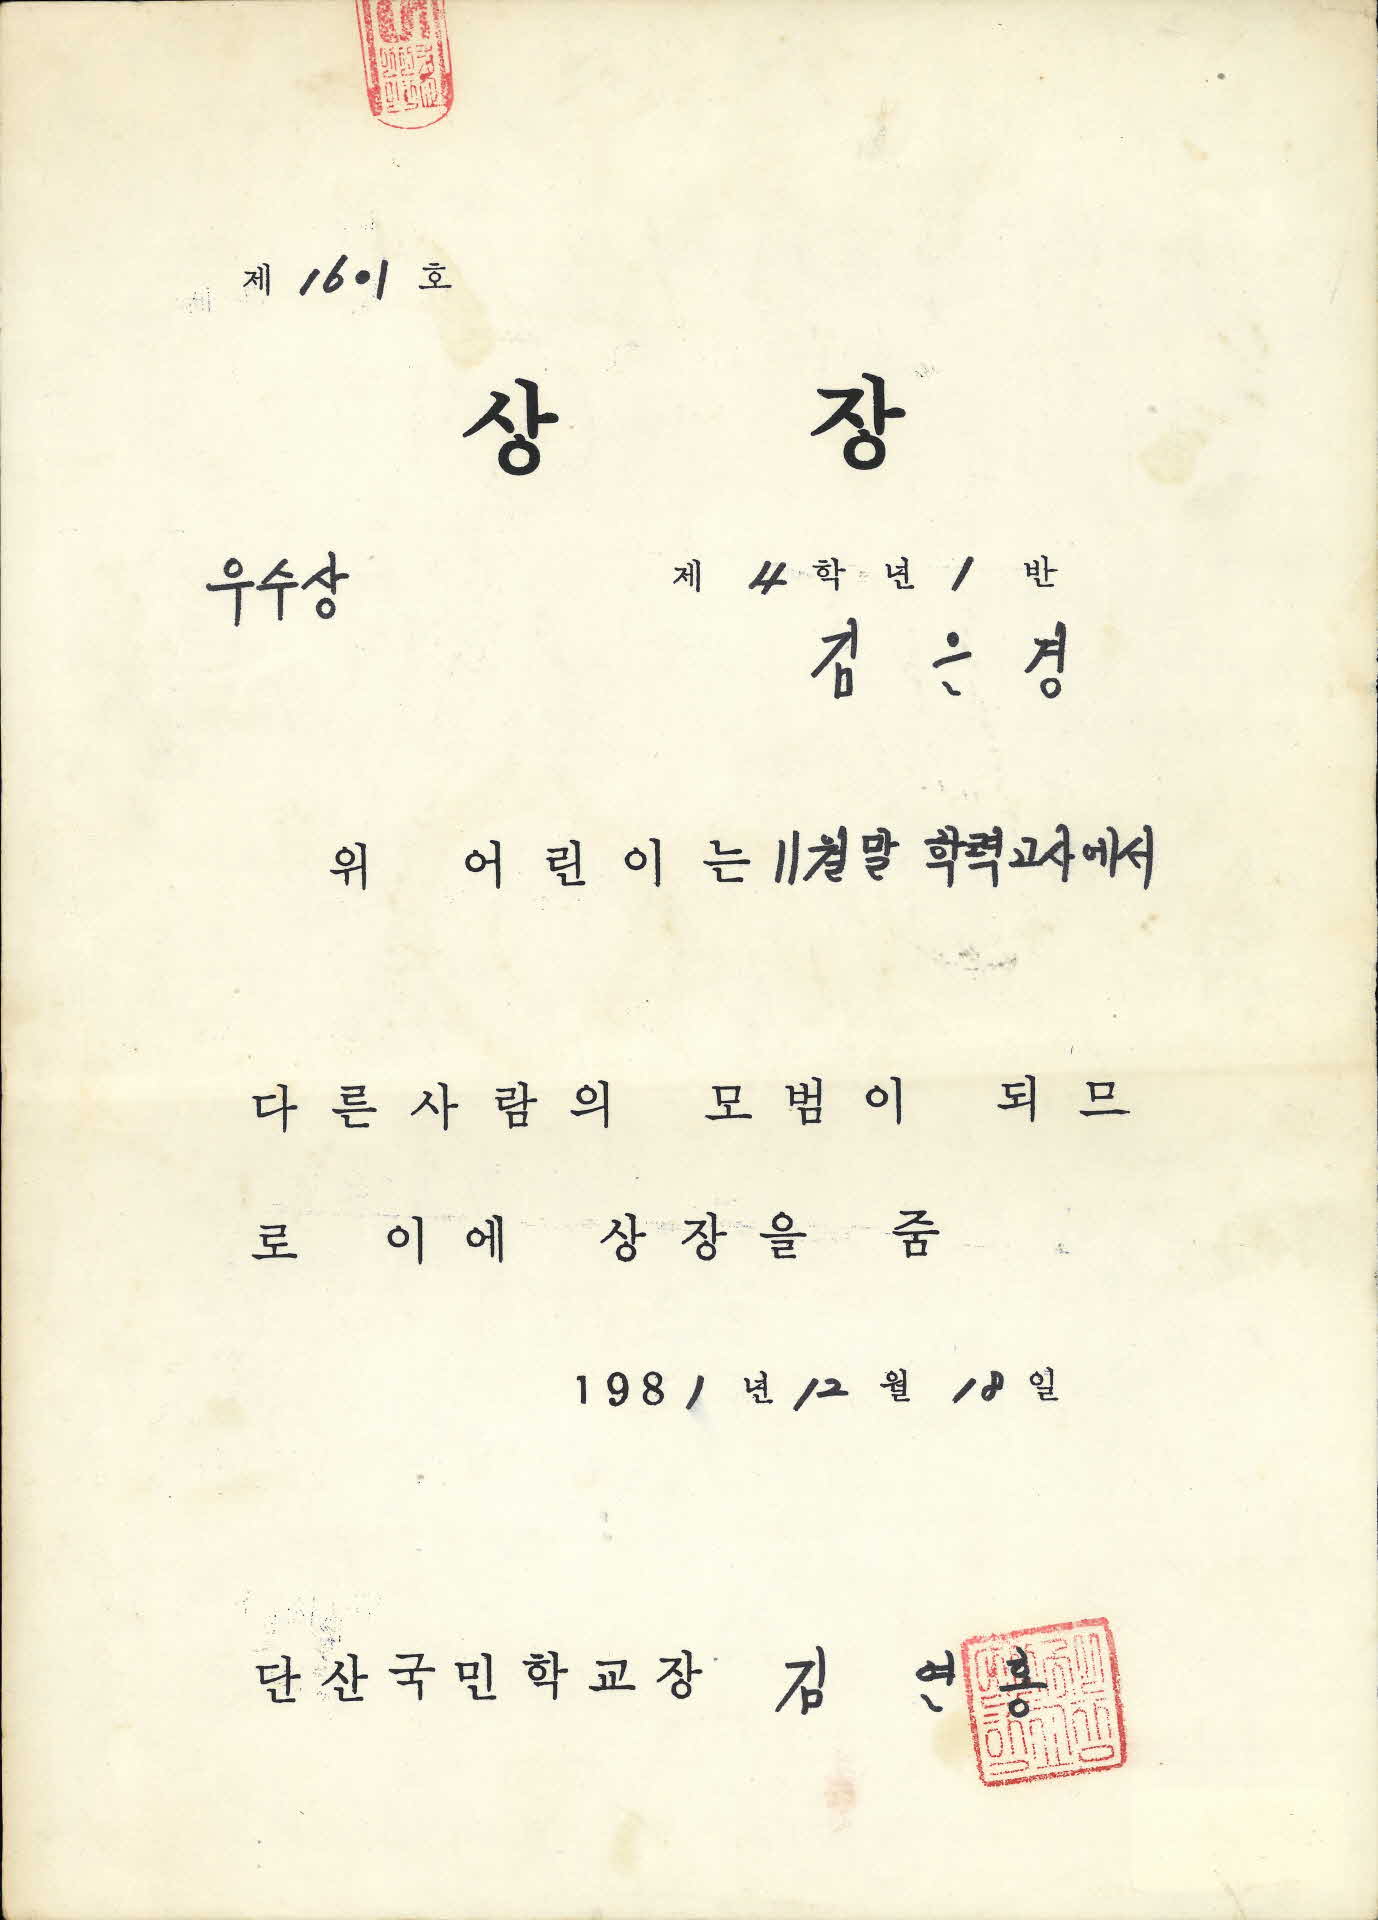 제 1601 호
상 장
우수상
제 4 학 년 1 반
김 은 경
위 어린이는 11월말 학력고사에서
다른사람의 모범이 되므
로 이에 상장을 줌
1981 년 12 월 18 일
단산국민학교장 김 연 홍